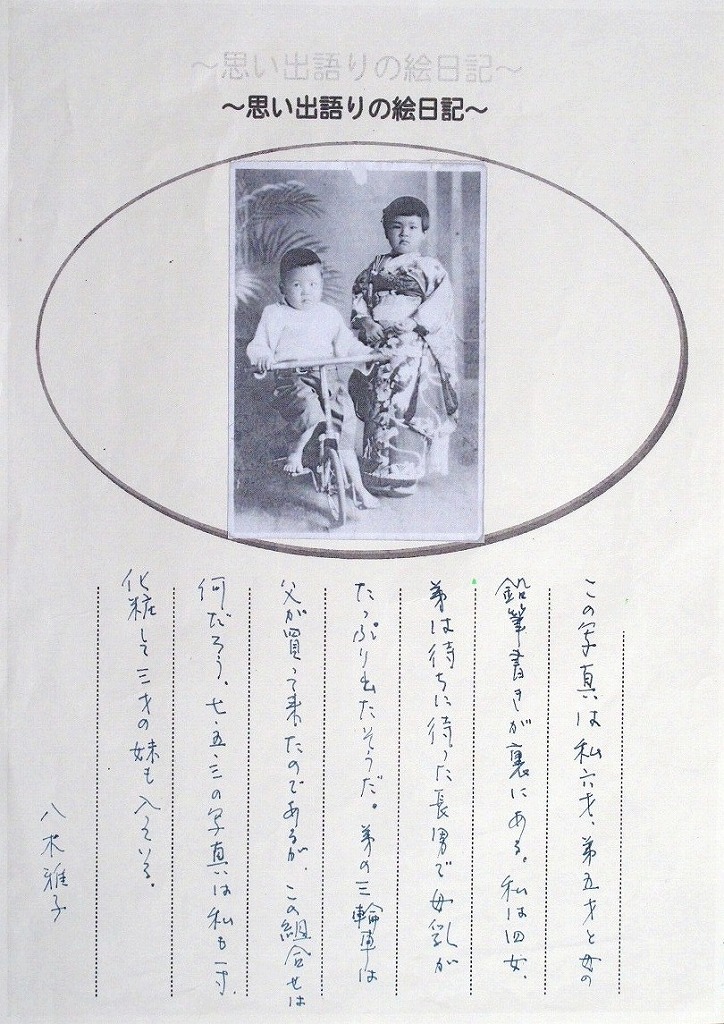 ～思い出語りの絵日記～
～思い出語りの絵日記～
この写真は私六才、弟五才と母の
鉛筆書きが裏にある。私は四女、
弟は待ちに待った長男で母乳が
たっぷり出たそうだ。弟の三輪車は
父が買って来たのであるが、この組合せは
何だろう、七・五・三の写真は私も一寸、
化粧して三才の妹も入っている。
八木雅子